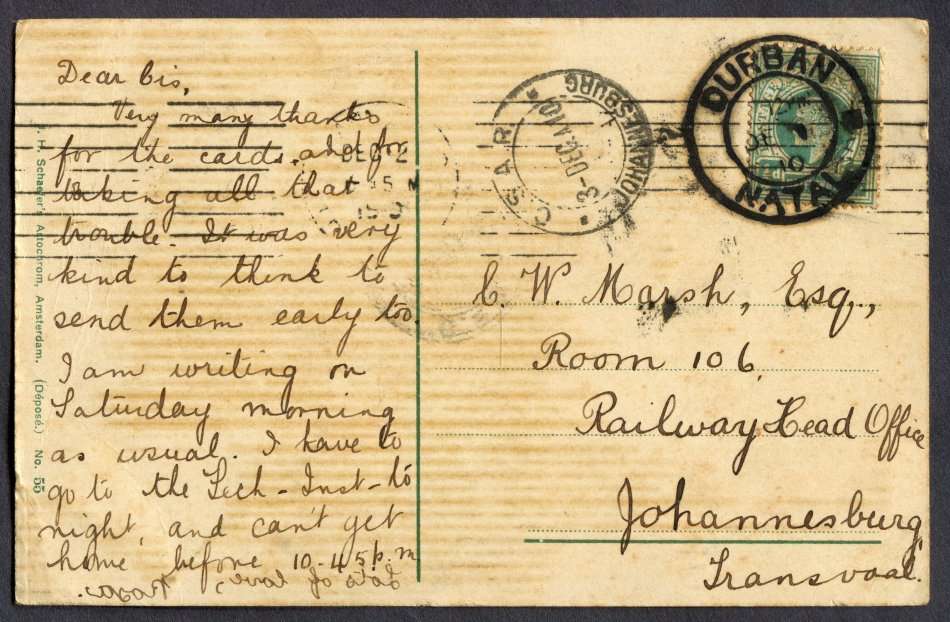 Dear Cis,
Very many thanks
for the cards, and for
taking all that
trouble. It was very
kind to think to
send them early too.
I am writing on
Saturday morning
as usual. I have to
go to the Tech-Inst-to
night, and can't get
home before 10.45 p.m
Lots of love,
J. H. Schaefer's Autochrom, Amsterdam. (Déposé.) No. 55
DEC 2
JOHANNESBURG
C.S.A.R.
3 DEC
10
DURBAN
NATAL
C. W. Marsh, Esq.,
Room 106,
Railway Head Office
Johannesburg,
Transvaal.